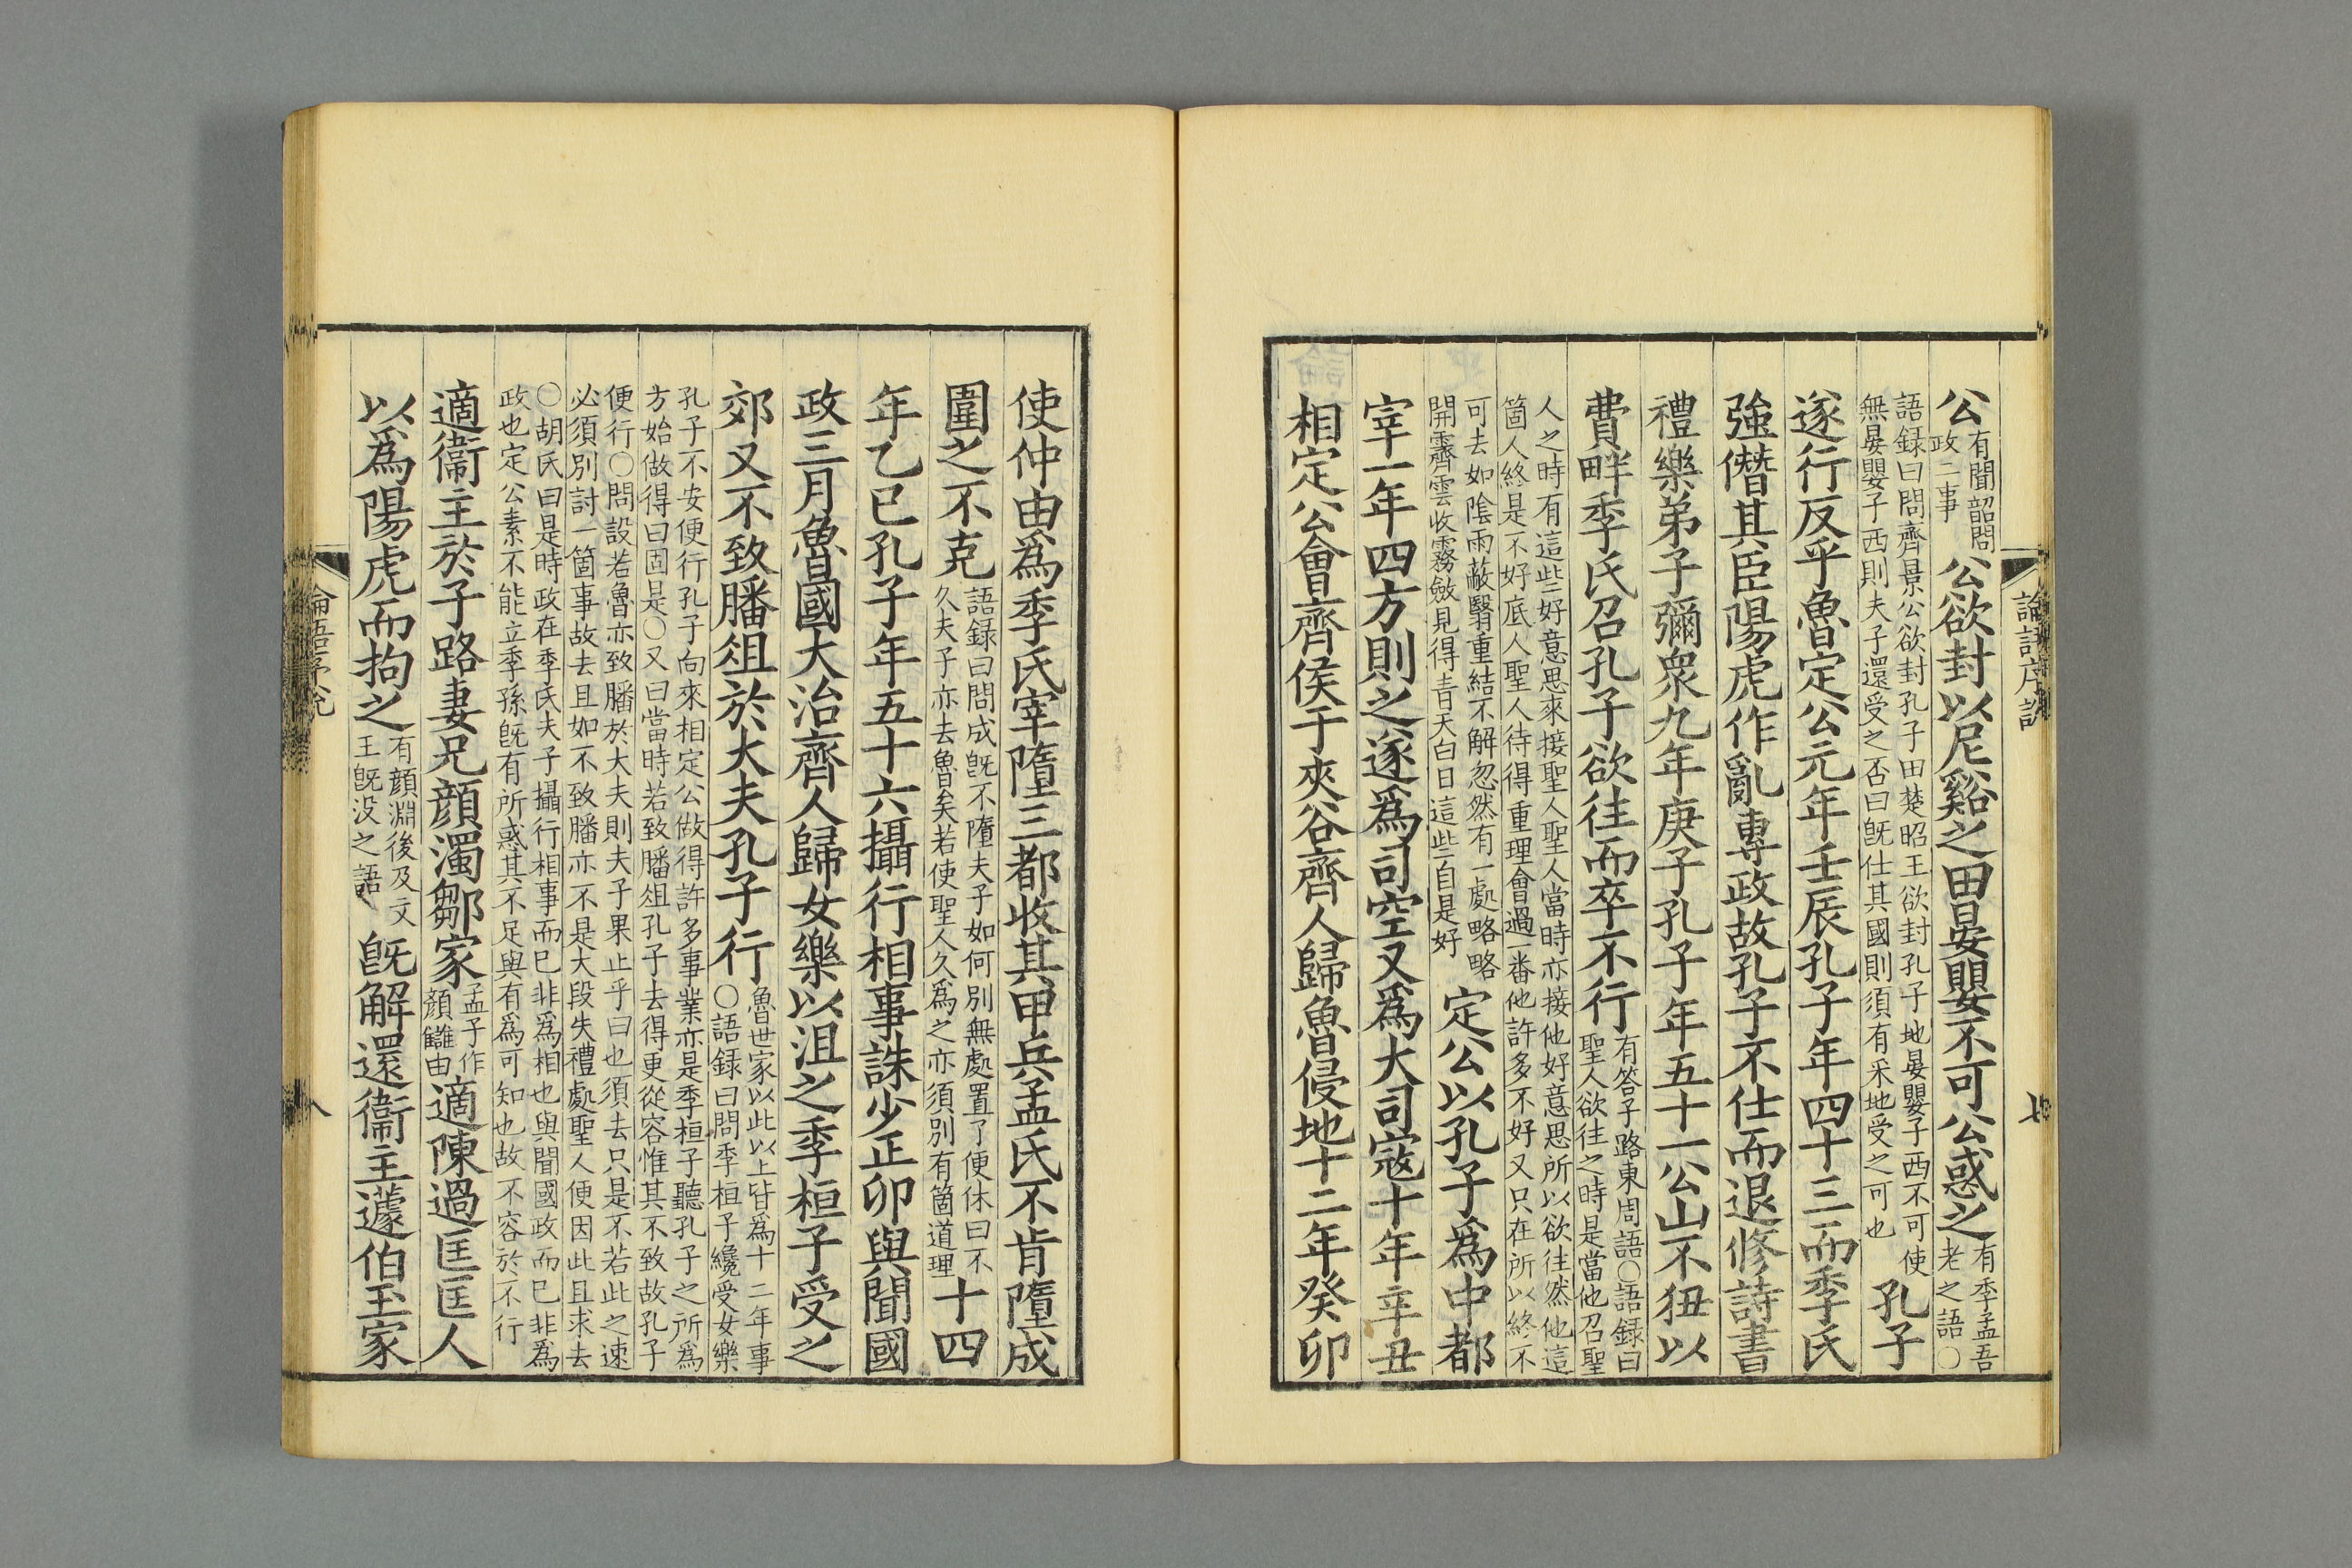 論語序說
七
公有聞韶問政二事公欲封以尼谿之田晏嬰不可公惑之有季孟吾老之語〇
語録曰問齊景公欲封孔子田楚昭王欲封孔子地晏嬰子西不可使無晏嬰子西則夫子還受之否曰旣仕其國則須有采地受之可也孔子
遂行反乎魯定公元年壬辰孔子年四十三而季氏
強僭其臣陽虎作亂專政故孔子不仕而退修詩書
禮樂弟子彌衆九年庚子孔子年五十一公山不狃以
費畔季氏召孔子欲往而卒不行有答子路東周語〇語録曰聖人欲往之時是當他召聖
人之時有這些好意思來接聖人聖人當時亦接他好意思所以欲往然他這箇人終是不好底人聖人待得重理會過一番他許多不好又只在所以終不
可去如陰雨蔽翳重結不解忽然有一處略略開霽雲收霧斂見得青天白日這些自是好定公以孔子爲中都
宰一年四方則之遂爲司空又爲大司寇十年辛丑
相定公會齊侯于夾谷齊人歸魯侵地十二年癸卯
使仲由爲季氏宰隳三都收其甲兵孟氏不肯隳成
圍之不克語録曰問成旣不隳夫子如何別無處置了便休曰不久夫子亦去魯矣若使聖人久爲之亦須別有箇道理十四
年乙巳孔子年五十六攝行相事誅少正卯與聞國
政三月魯國大治齊人歸女樂以沮之季桓子受之
郊又不致膰俎於大夫孔子行魯世家以此以上皆爲十二年事〇語録曰問季桓子纔受女樂
孔子不安便行孔子向來相定公做得許多事業亦是季桓子聽孔子之所爲方始做得曰固是〇又曰當時若致膰俎孔子去得更從容惟其不致故孔子
便行〇問設若魯亦致膰於大夫則夫子果止乎曰也須去只是不若此之速必須別討一箇事故去且如不致膰亦不是大段失禮處聖人便因此且求去
〇胡氏曰是時政在季氏夫子攝行相事而已非爲相也與聞國政而已非爲政也定公素不能立季孫旣有所惑其不足與有爲可知也故不容於不行
適衞主於子路妻兄顔濁鄒家孟子作顔讎由適陳過匡匡人
以爲陽虎而拘之有顔淵後及文王旣没之語旣解還衞主蘧伯玉家
八